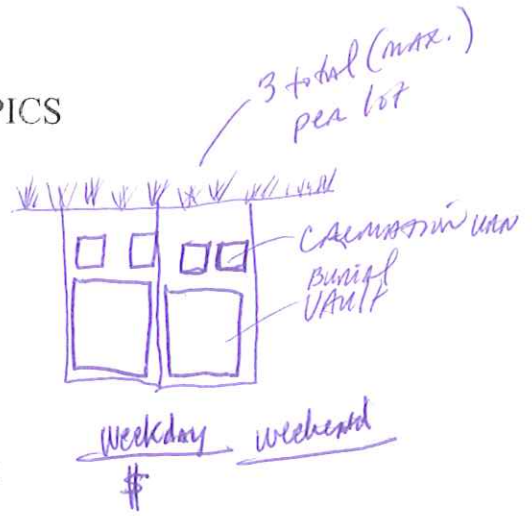 PICS
3 total (max.)
per lot
CREMATION URN
Burial
VAULT
Weekday weekend
$